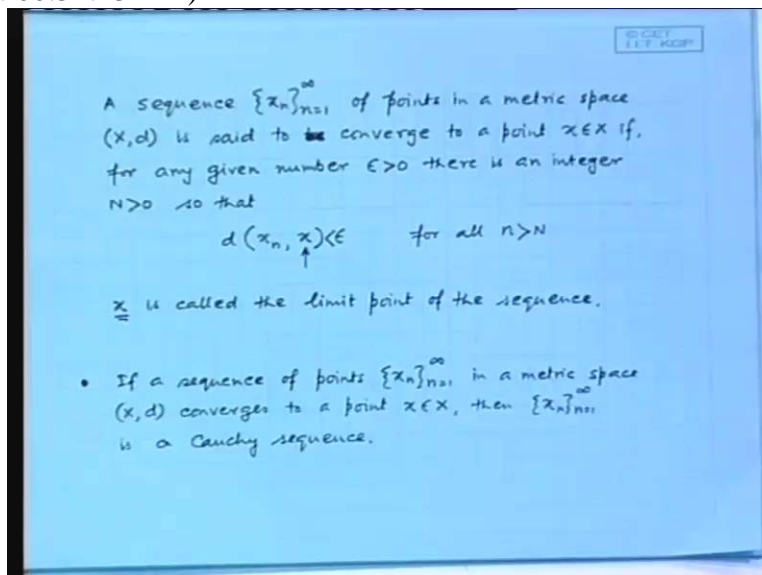 © CET
I.I.T. KGP
A sequence {xₙ}ₙ₌₁^∞ of points in a metric space
(X,d) is said to converge to a point x∈X if,
for any given number ϵ>0 there is an integer
N>0 so that
d(xₙ, x)<ϵ for all n>N
↑
x is called the limit point of the sequence.
• If a sequence of points {xₙ}ₙ₌₁^∞ in a metric space
(X,d) converges to a point x∈X, then {xₙ}ₙ₌₁^∞
is a Cauchy sequence.